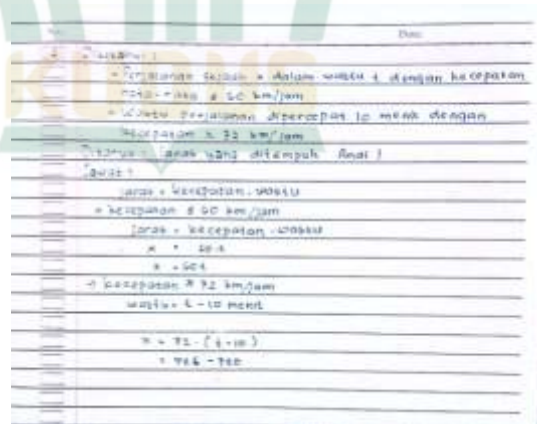 No. Date:
Diketahui :
• Perjalanan sejauh x dalam waktu t dengan kecepatan
rata-rata = 60 km/jam
• Waktu perjalanan dipercepat 10 menit dengan
kecepatan = 72 km/jam
Ditanya : Jarak yang ditempuh Andi ?
Jawab :
Jarak = kecepatan . waktu
→ kecepatan = 60 km/jam
Jarak = kecepatan . waktu
x = 60 . t
x = 60t
→ kecepatan = 72 km/jam
waktu = t - 10 menit
x = 72 . (t - 10)
= 72t - 720